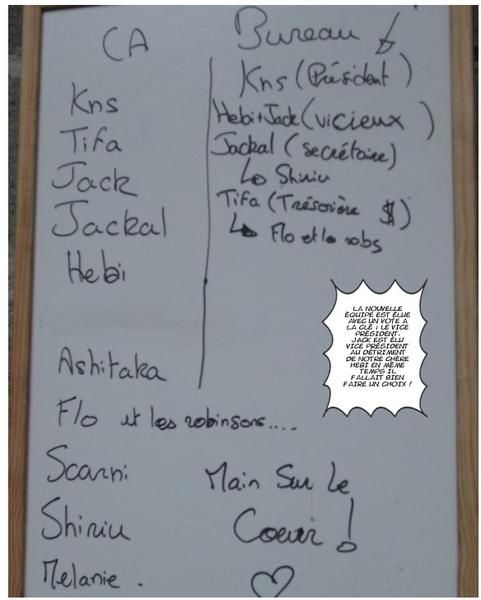 CA
Kns
Tifa
Jack
Jackal
Hebi
Ashitaka
Flo et les robinsons....
Scarni
Shiriu
Melanie.
Bureau
Kns (Président)
Hebi+Jack (vicieux)
Jackal (secrétaire)
↳ Shiriu
Tifa (Trésorière $)
↳ Flo et le robs
LA NOUVELLE
ÉQUIPE EST ÉLUE
AVEC UN VOTE A
LA CLÉ : LE VICE
PRÉSIDENT.
JACK EST ÉLU
VICE PRÉSIDENT
AU DÉTRIMENT
DE NOTRE CHÈRE
HEBI EN MÊME
TEMPS IL
FALLAIT BIEN
FAIRE UN CHOIX !
Main Sur Le
Coeur !
♡